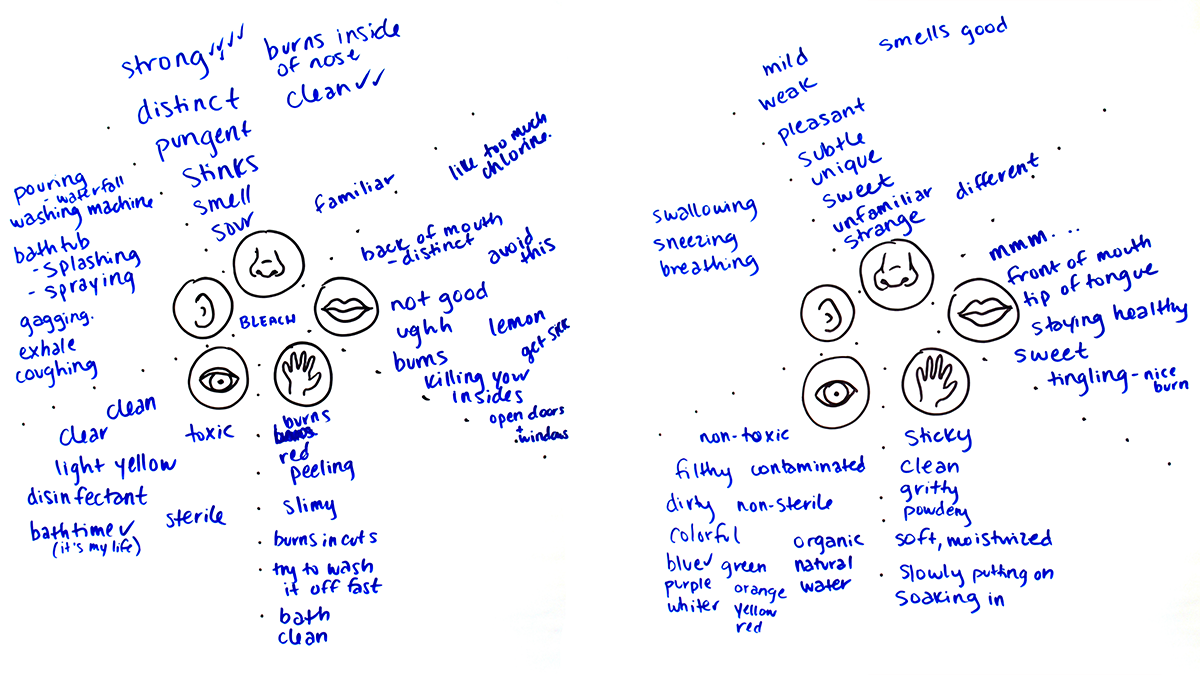 strong✓✓✓✓
burns inside
of nose
distinct
clean✓✓
pungent
stinks
smell
sour
familiar
like too much
chlorine.
pouring
- waterfall
washing machine
bathtub
- splashing
- spraying
gagging.
exhale
coughing
BLEACH
back of mouth
- distinct
avoid
this
not good
ughh
lemon
burns
get sick
killing your
insides
open doors
+
windows
clean
clear
toxic
light yellow
disinfectant
bathtime✓
(it's my life)
sterile
burns
red
peeling
slimy
burns in cuts
try to wash
it off fast
bath
clean
mild
smells good
weak
pleasant
subtle
unique
sweet
unfamiliar
different
strange
swallowing
sneezing
breathing
mmm...
front of mouth
tip of tongue
staying healthy
sweet
tingling - nice
burn
non-toxic
filthy contaminated
dirty non-sterile
colorful
blue✓ green
purple orange
white✓ yellow
red
organic
natural
water
sticky
clean
gritty
powdery
soft, moisturized
slowly putting on
soaking in